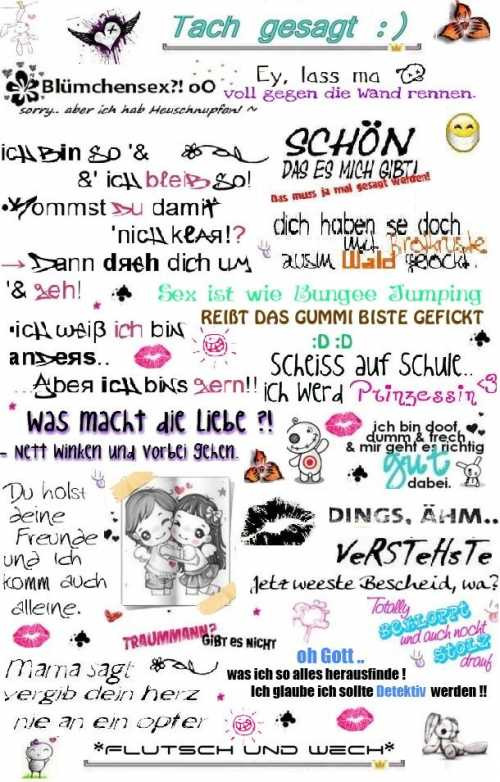 Tach gesagt :)
Blümchensex?! oO
sorry.. aber ich hab Heuschnupfen! ~
Ey, lass ma
voll gegen die Wand rennen.
ich Bin so '&
&' ich bleib so!
Kommst Du damit
'nich klar!?
→ Dann dreh dich um
'& geh!
•ich weiß ich bin
anders..
...Aber ich bins gern!!
SCHÖN
DAS ES MICH GIBT!
Das muss ja mal gesagt werden!
dich haben se doch
mit Brotkruste
aus'm Wald gelockt.
Sex ist wie Bungee Jumping
REIßT DAS GUMMI BISTE GEFICKT
:D :D
Scheiss auf Schule..
ich werd Prinzessin <3
Was macht die Liebe ?!
- Nett winken und vorbei gehen.
ich bin doof,
dumm & frech
& mir geht es richtig
gut
dabei.
Du holst
deine
Freunde
und Ich
komm auch
alleine.
DINGS, ÄHM..
VeRSTeHsTe
Jetz weeste Bescheid, wa?
Totally
BEKLOPPT
und auch noch
STOLZ
drauf
TRAUMMANN? GiBT ES NiCHT
oh Gott ..
was ich so alles herausfinde !
Ich glaube ich sollte Detektiv werden !!
Mama sagt
vergib dein herz
nie an ein opfer
*FLUTSCH UND WECH*